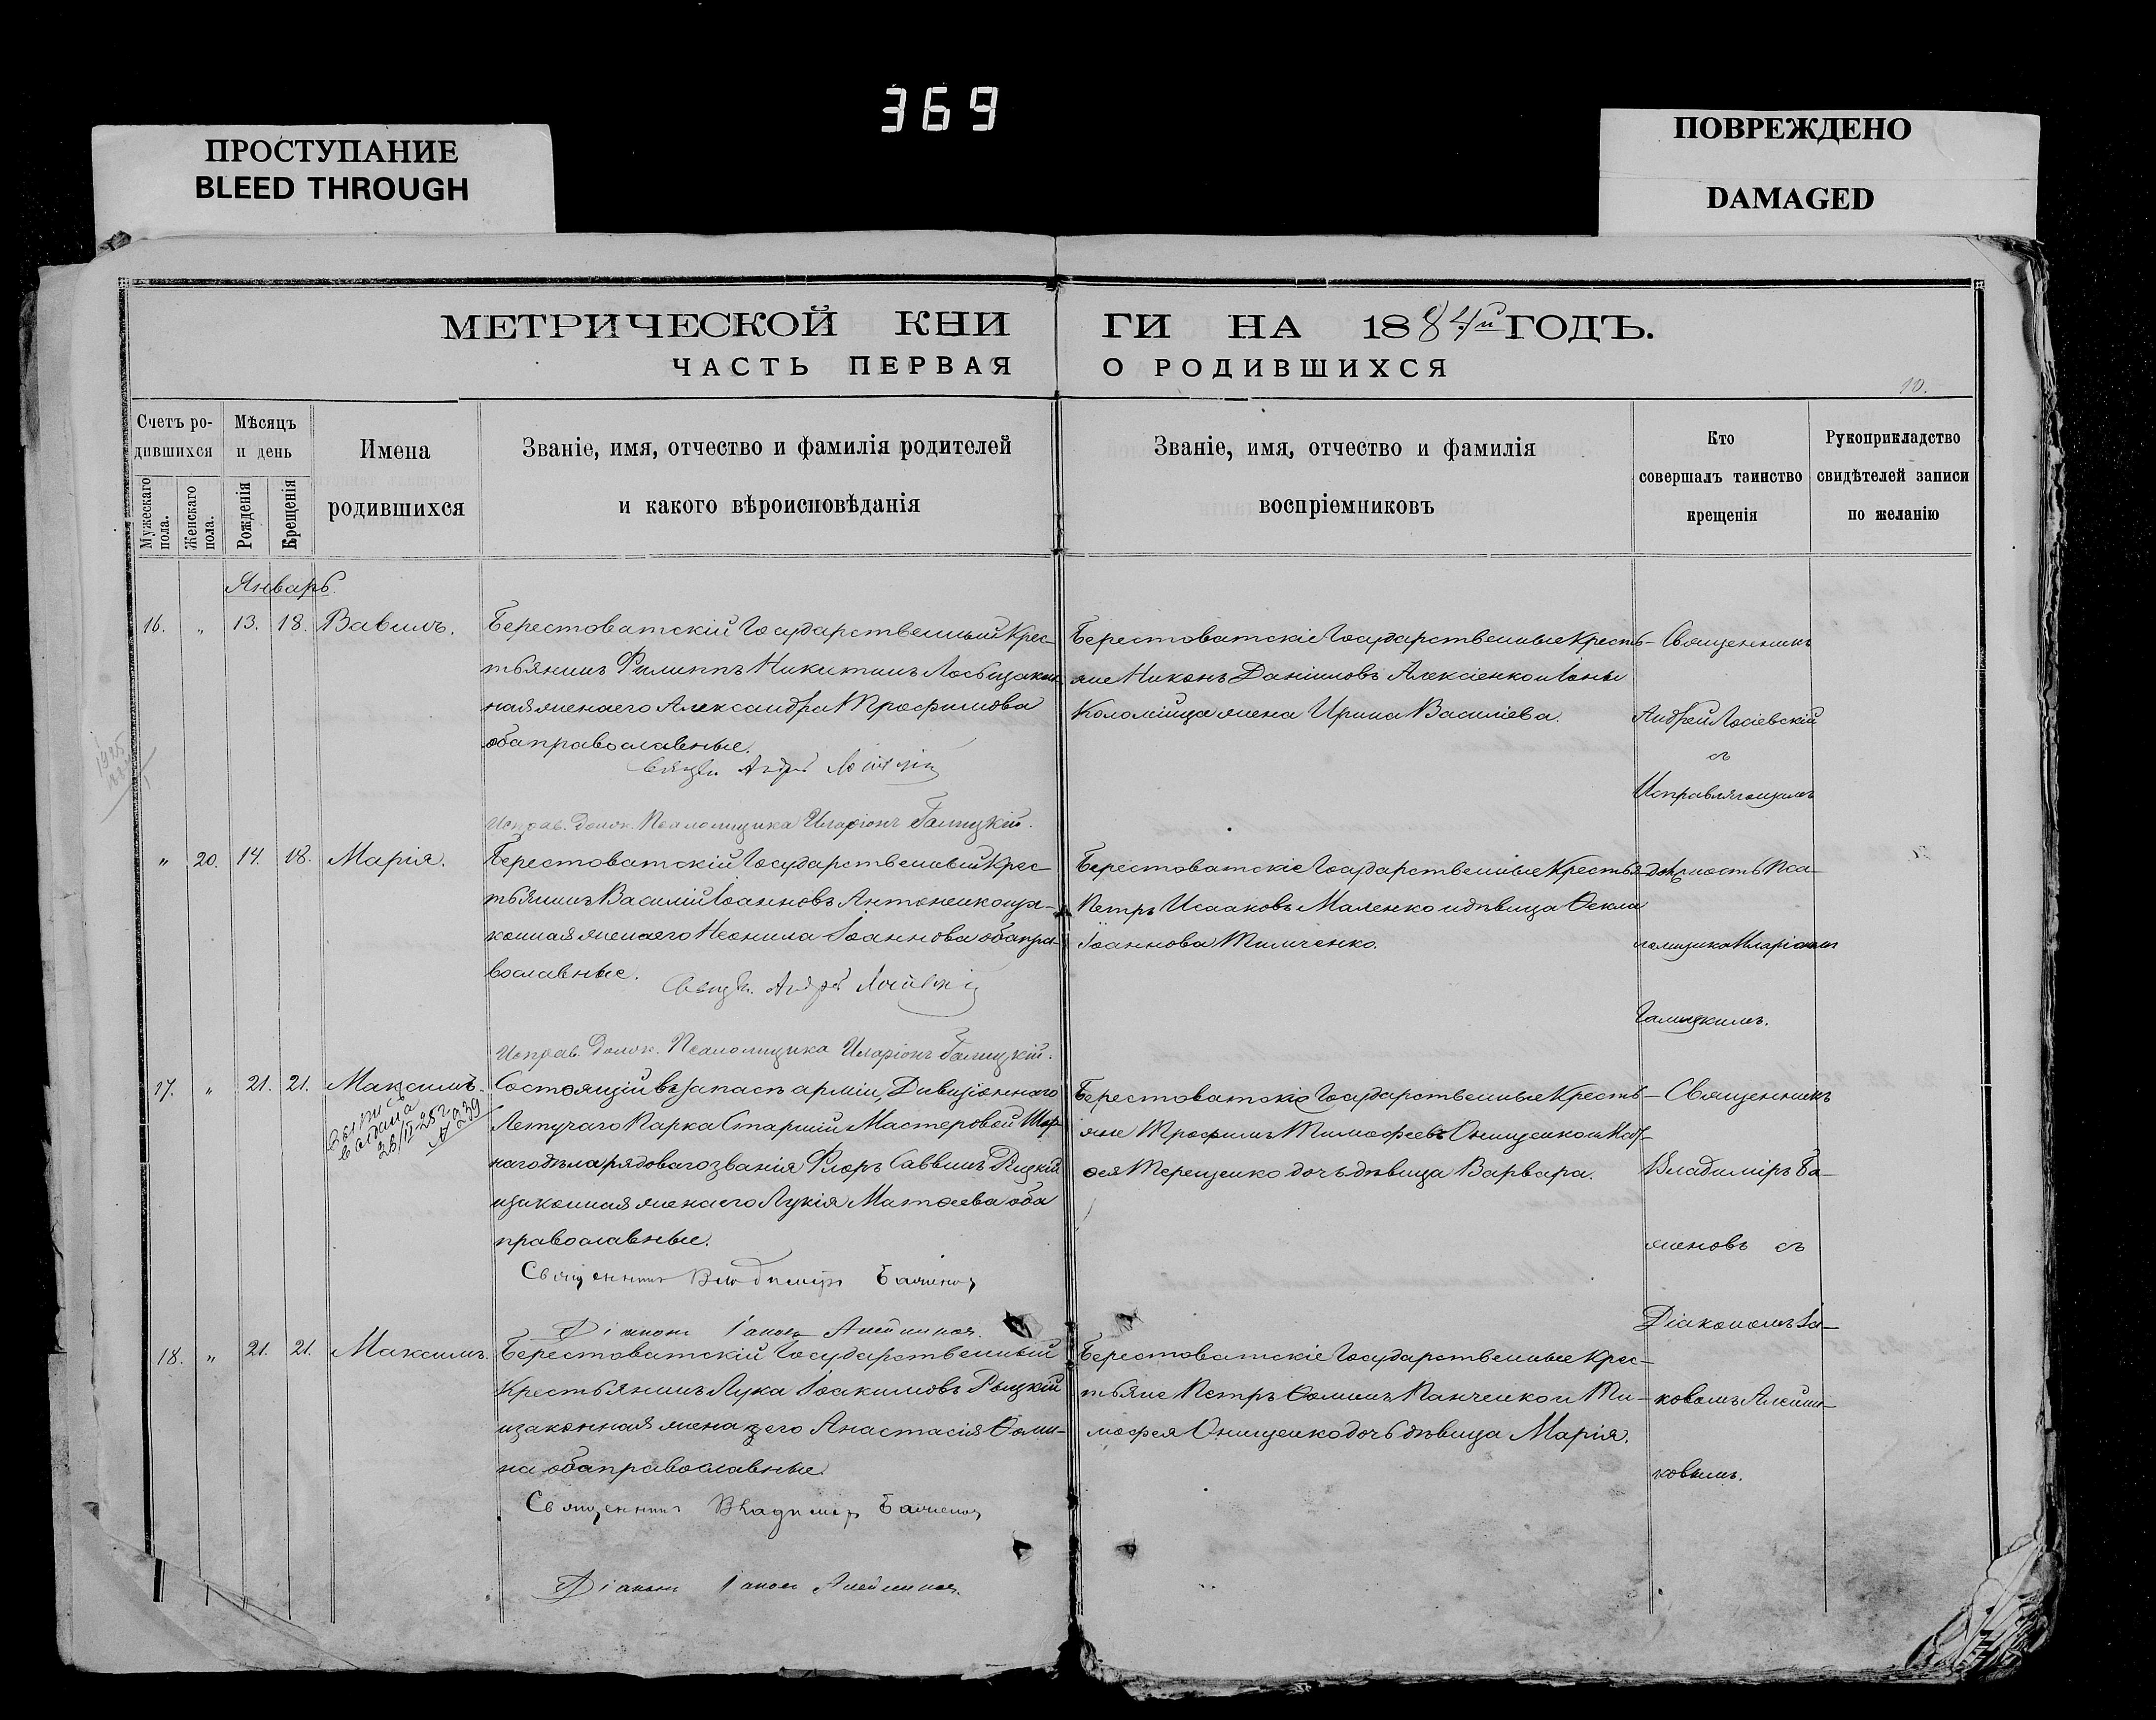 369
ПРОСТУПАНИЕ
BLEED THROUGH
ПОВРЕЖДЕНО
DAMAGED
МЕТРИЧЕСКОЙ КНИ ГИ НА 1884й ГОДЪ.
ЧАСТЬ ПЕРВАЯ О РОДИВШИХСЯ
10.
Счетъ ро-
дившихся
Мужескаго пола.
Женскаго пола.
Мѣсяцъ
и день
Рожденія
Крещенія
Имена
родившихся
Званіе, имя, отчество и фамилія родителей
и какого вѣроисповѣданія
Званіе, имя, отчество и фамилія
воспріемниковъ
Кто
совершалъ таинство
крещенія
Рукоприкладство
свидѣтелей записи
по желанію
Январь.
16. " 13. 18. Вавилъ.
Берестоватскій Государственный Крес-
тьянинъ Филиппъ Никитинъ Лось и закон
ная жена его Александра Трофимова
оба православные.
Берестоватскіе Государственные Кресть-
яне Никонъ Даніиловъ Алексіенко и Іоны
Коломійца жена Ирина Василіева.
Священникъ
Андрей Лосіевскій
съ
Исправляющимъ
Исправ. должн. Псаломщика Иларіонъ Галицкій.
" 20. 14. 18. Марія.
Берестоватскій Государственный Крес-
тьянинъ Василій Іоанновъ Антоненко и за-
конная жена его Неонила Іоаннова оба пра-
вославные.
Берестоватскіе Государственные Крестья-
Петръ Исааковъ Маленко и дѣвица Ѳекла
Іоаннова Тимченко.
должность Пса-
ломщика Иларіономъ
Галицкимъ.
Исправ. должн. Псаломщика Иларіонъ Галицкій.
17. " 21. 21. Максимъ.
Состоящій въ запасѣ арміи, Дивизіоннаго
Летучаго Парка Старшій Мастеровой Шор-
наго дѣла рядоваго званія Флоръ Саввинъ Рицкій
и законная жена его Лукія Матѳеева оба
православные.
Священникъ Владиміръ Баженовъ
Діаконъ Іаковъ Алейниковъ.
Берестоватскіе Государственные Кресть-
яне Трофимъ Тимофеевъ Онищенко и
Терещенко дочь дѣвица Варвара.
Священникъ
Владиміръ Ба-
женовъ съ
Діакономъ Іа-
ковомъ Алейни-
ковымъ.
18. " 21. 21. Максимъ.
Берестоватскій Государственный
Крестьянинъ Лука Іоакимовъ Рыцкій
и законная жена его Анастасія Ѳоми-
на оба православные.
Священникъ Владиміръ Баженовъ
Діаконъ Іаковъ Алейниковъ.
Берестоватскіе Государственные Крес-
тьяне Петръ Ѳоминъ Панченко и Ти-
мофея Онищенко дочь дѣвица Марія.